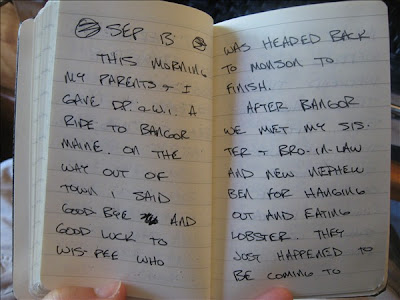 SEP 13
THIS MORNING
MY PARENTS + I
GAVE DR. OWI. A
RIDE TO BANGOR
MAINE. ON THE
WAY OUT OF
TOWN I SAID
GOOD BYE AND
GOOD LUCK TO
WIS-PEE WHO
WAS HEADED BACK
TO MONSON TO
FINISH.
AFTER BANGOR
WE MET MY SIS-
TER + BRO-IN-LAW
AND NEW NEPHEW
BEN FOR HANGING
OUT AND EATING
LOBSTER. THEY
JUST HAPPENED TO
BE COMING TO